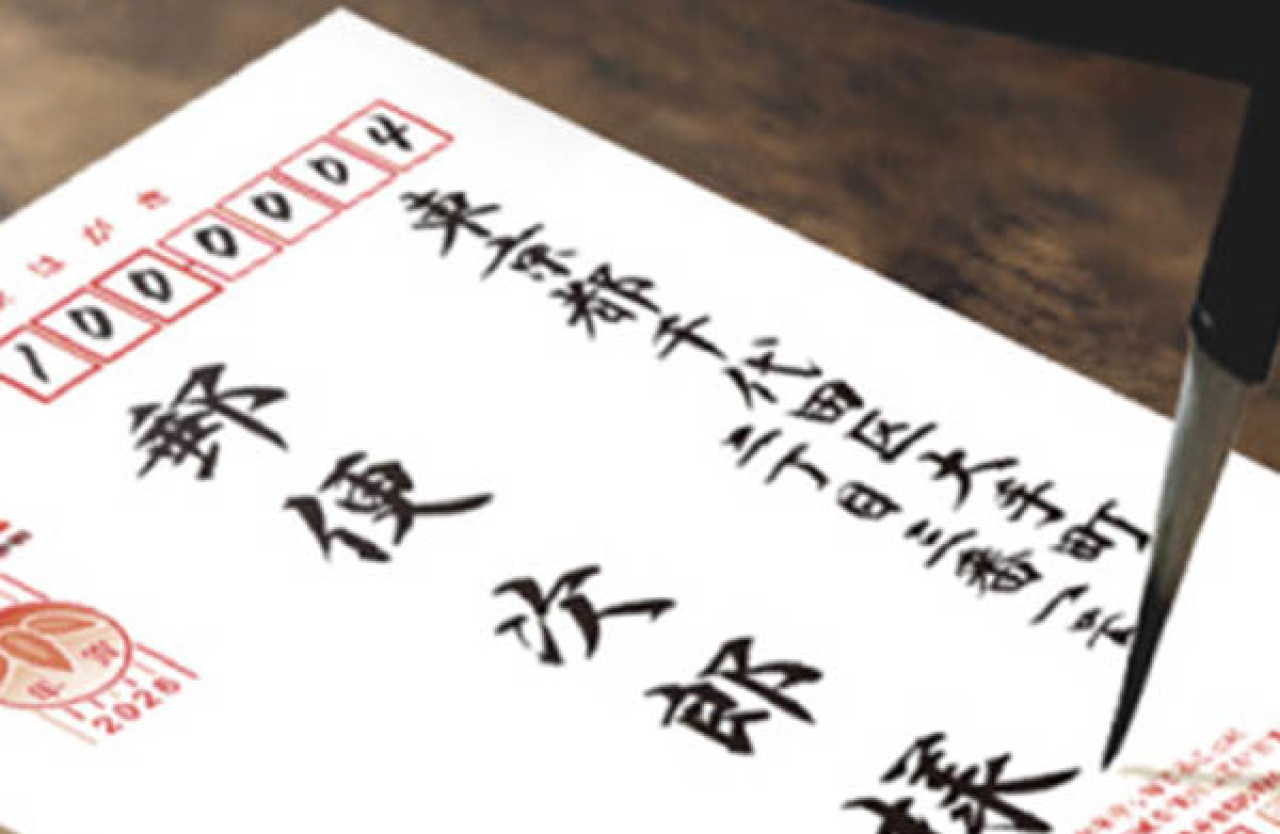 はがき
1000004
東京都千代田区大手町
二丁目三番一号
郵便次郎様
年賀
2026